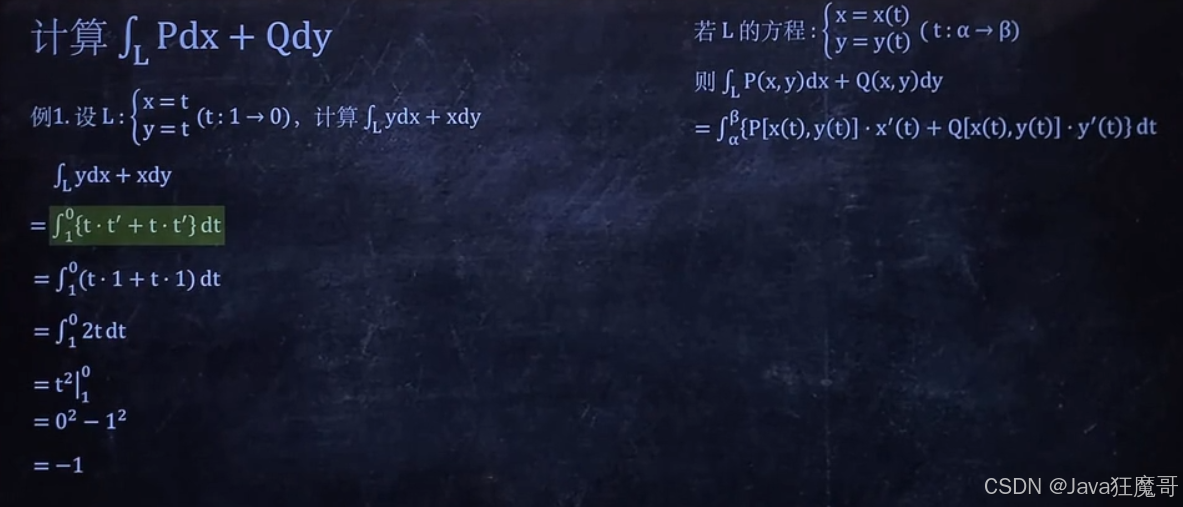 计算 ∫_L Pdx + Qdy
例1. 设 L : { x = t y = t (t : 1 → 0)，计算 ∫_L ydx + xdy
∫_L ydx + xdy
= ∫_1^0 {t · t′ + t · t′} dt
= ∫_1^0 (t · 1 + t · 1) dt
= ∫_1^0 2t dt
= t²|_1^0
= 0² − 1²
= −1
若 L 的方程 : { x = x(t) y = y(t) ( t : α → β)
则 ∫_L P(x, y)dx + Q(x, y)dy
= ∫_α^β {P[x(t), y(t)] · x′(t) + Q[x(t), y(t)] · y′(t)} dt
CSDN @Java狂魔哥